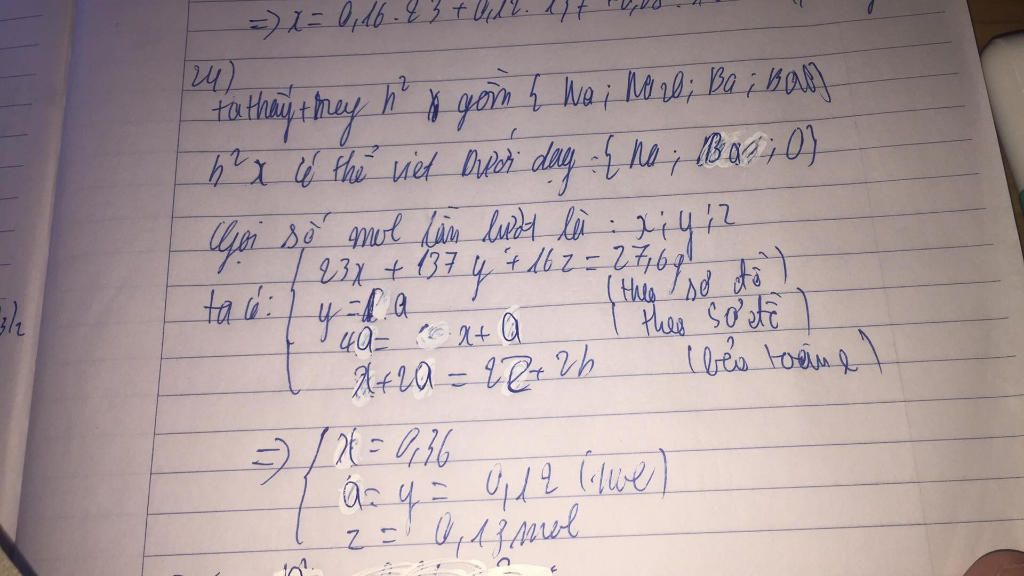 => x = 0,16.23 + 0,12.137 +
24)
ta thấy + hh² X gồm { Na ; Na2O ; Ba ; BaO}
h² x có thể viết dưới dạng : { Na ; Ba ; O}
Gọi số mol lần lượt là : x ; y ; z
ta có : { 23x + 137 y + 16 z = 27,6g
y = a (theo sơ đồ)
4a = x + a (theo sơ đồ)
x + 2a = 2z + 2b (bảo toàn e)
=> { x = 0,36
a = y = 0,12 (mol)
z = 0,13 mol